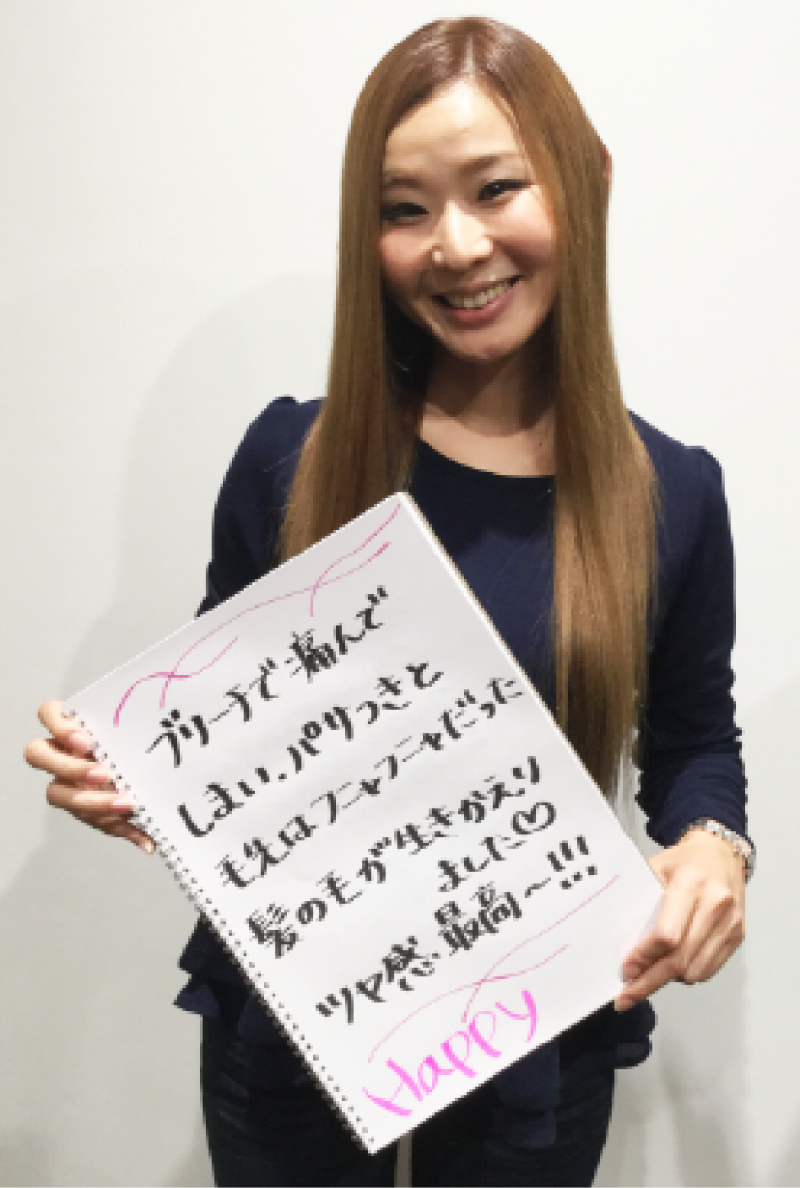 ブリーチで痛んで
しまい、パサつきと
毛先はフニャフニャだった
髪の毛が生きかえり
ました♡
ツヤ感最高〜!!!
Happy